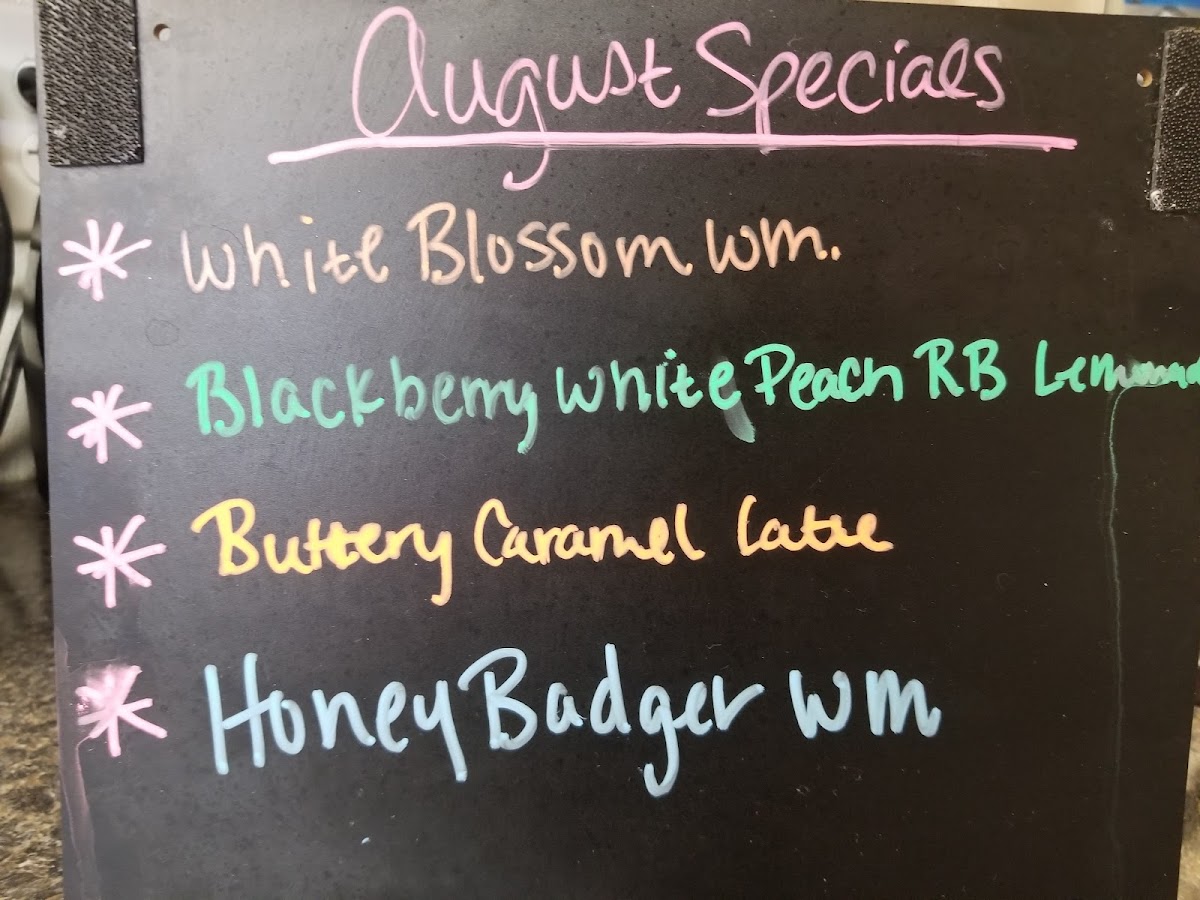 August Specials
* White Blossom Wm.
* Blackberry White Peach RB Lemonad
* Buttery Caramel Latte
* Honey Badger WM